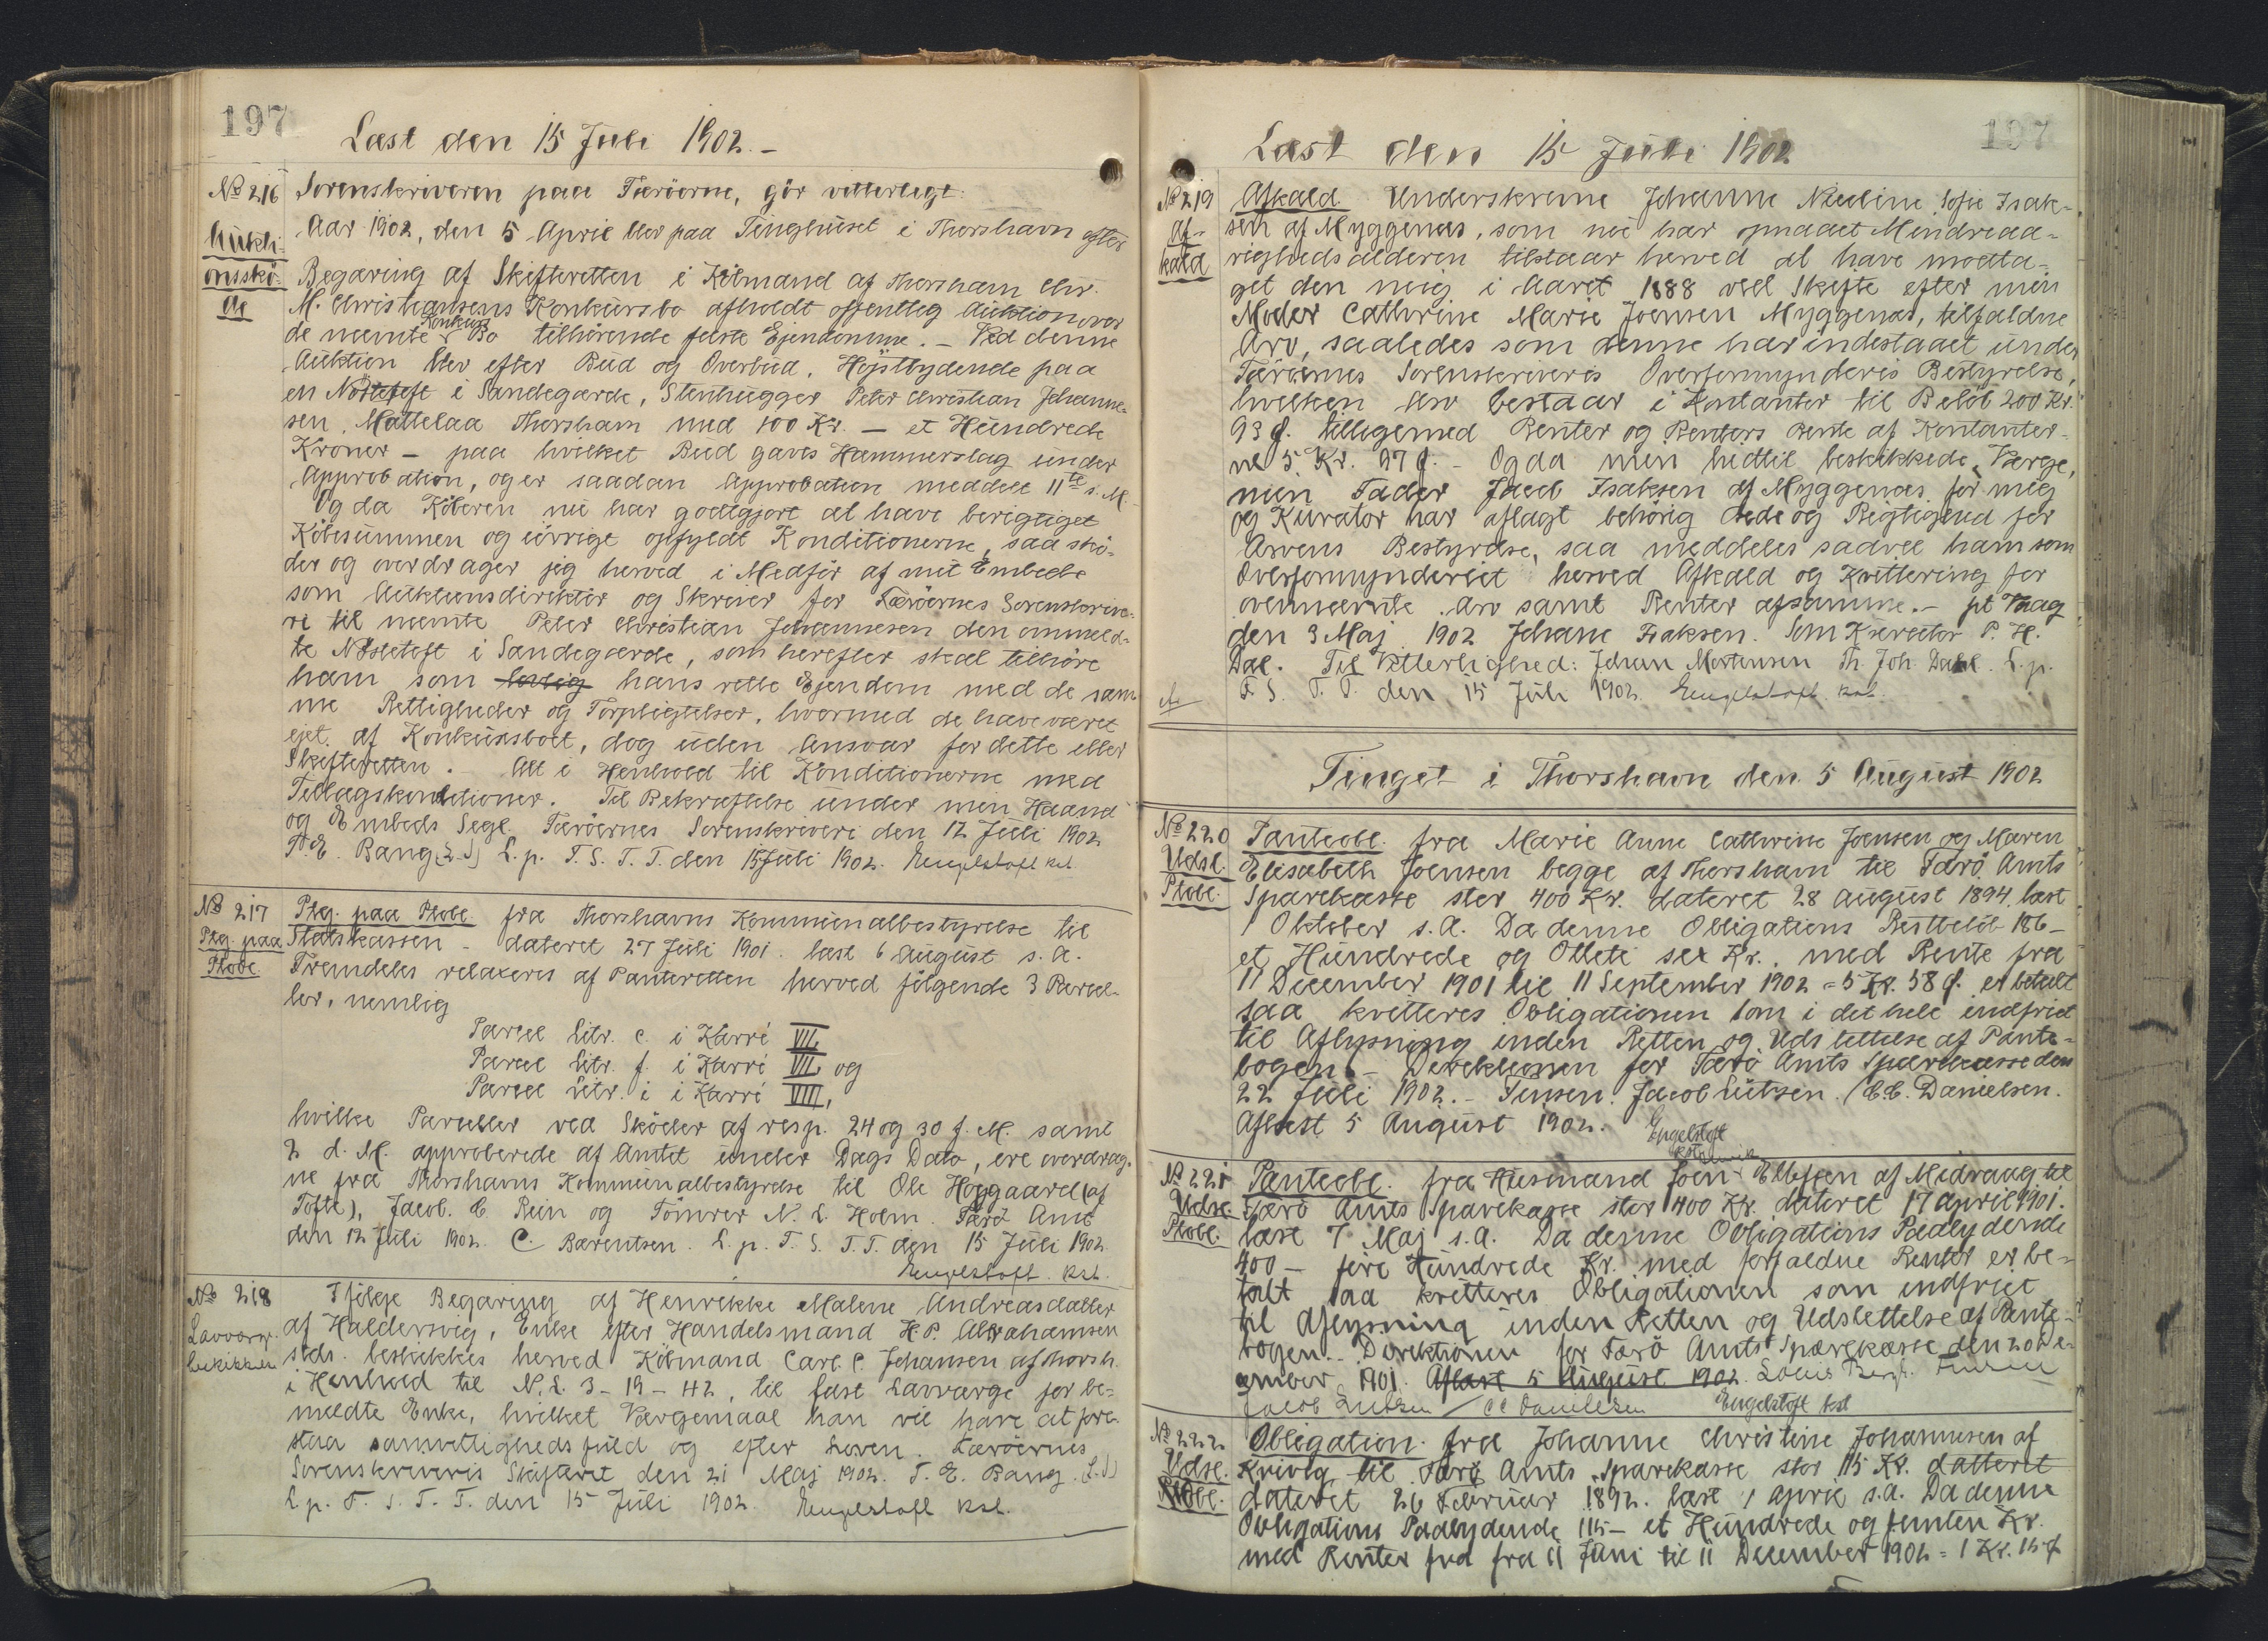 197
Læst den 15 Juli 1902.-
No 216
Aukti-
onsskö-
de
Sorenskriveren paa Færöerne, gör vitterligt:
Aar 1902, den 5 April blev paa Tinghuset i Thorshavn efter
Begæring af Skifteretten i Købmand af Thorshavn Chr.
M. Christiansens Konkursbo afholdt offentlig Auktion over
de nævnte Konkurs Bo tilhörende faste Ejendomme. - Ved denne
Auktion blev efter Bud og Overbud, Højstbydende paa
en Nöstetoft i Sandegærde, Stenhugger Peter Christian Johanne-
sen, Mattelaa Thorshavn med 100 Kr. - et Hundrede
Kroner - paa hvilket Bud gaves Hammerslag under
Approbation, og er saadan Approbation meddelt 11te s. M.
Og da Köberen nu har godtgjort at have berigtiget
Köbesummen og iövrigt opfyldt Konditionerne, saa skö-
der og overdrager jeg herved i Medför af mit Embede
som Auktionsdirektör og Skriver for Færöernes Sorenskrive-
ri til nævnte Peter Christian Johannesen den ommeld-
te Nöstetoft i Sandegærde, som herefter skal tilhöre
ham som lovlig hans rette Ejendom med de sam-
me Rettigheder og Forpligtelser, hvormed de have været
ejet af Konkursboet, dog uden Ansvar for dette eller
Skifteretten. - Alt i Henhold til Konditionerne med
Tillægskonditioner. Til Bekræftelse under min Haand
og Embeds Segl. Færöernes Sorenskriveri den 12 Juli 1902
T. E. Bang (L.S) L.p. F. S. T. T. den 15 Juli 1902. Engelstoft kst
No 217
Ptg. paa
Ptobl.
Ptg. paa Ptobl. fra Thorshavns Kommunalbestyrelse til
Statskassen - dateret 27 Juli 1901. læst 6 August s. A.
Fremdeles relaxeres af Panteretten herved følgende 3 Parcel-
ler, nemlig
Parcel Litr. c. i Karré VII,
Parcel Litr. f. i Karré VII, og
Parcel Litr. i i Karré VIII,
hvilke Parceller ved Sköder af resp. 24 og 30 f. M. samt
2 d. M. approberede af Amtet under Dags Dato, ere overdrag-
ne fra Thorshavns Kommunalbestyrelse til Ole Hoygaard (af
Tofte), Jacob. C Rein og Tömrer N. L. Holm. Færö Amt
den 12 Juli 1902. C. Bærentsen. L. p. F. S. T. T. den 15 Juli 1902
Engelstoft. kst.
No 218
Lavværge
beskikkelse
Ifölge Begæring af Henrikke Malene Andreasdatter
af Haldersvig, Enke efter Handelsmand H. P. Abrahamsen
stds. beskikkes herved Köbmand Carl C. Johansen af Thorsh.
i Henhold til N. L. 3-19-42, til fast Lavværge for be-
meldte Enke, hvilket Værgemaal han vil have at fore-
staa samvittighedsfuld og efter Loven. Færöernes
Sorenskriveris Skifteret den 21 Maj 1902. T. E. Bang. (L.S)
L. p. F. S. T. T. den 15 Juli 1902. Engelstoft kst.
197
Læst den 15 Juli 1902
No 219
Af-
kald
Afkald Underskrevne Johanne Nicoline Sofie Isak-
sen af Myggenæs, som nu har opnaaet Mindreaa-
righedsalderen tilstaar herved at have modta-
get den mig i Aaret 1888 ved Skifte efter min
Moder Cathrine Marie Joensen Myggenæs, tilfaldne
Arv, saaledes som denne har indestaaet under
Færöernes Sorenskriveris Overformynderis Bestyrelse,
hvilken Arv bestaar i Kontanter til Belöb 200 Kr.
93 ø. tilligemed Renter og Renters Rente af Kontanter-
ne 5 Kr. 97 ø. - Og da min hidtil beskikkede Værge,
min Fader Jacob Isaksen af Myggenæs for mig
og Kurator har aflagt behörig Rede og Rigtighed for
Arvens Bestyrelse, saa meddeles saavel ham som
Overformynderiet herved Afkald og Kvittering for
ovennævnte Arv samt Renter af samme. - pt Vaag
den 3 Maj 1902 Johane Isaksen. Som Kurator P. H.
Dal. Til Vitterlighed: Johan Mortensen Th. Joh. Dahl. L. p.
F. S. T. T. den 15 Juli 1902. Engelstoft kst.
Tinget i Thorshavn den 5 August 1902
No 220
Udsl.
Ptobl.
Panteobl. fra Marie Anne Cathrine Joensen og Maren
Elisabeth Joensen begge af Thorshavn til Færö Amts
Sparekasse stor 400 Kr. dateret 28 August 1894, læst
1 Oktober s. A. Da denne Obligations Restbelöb 186-
et Hundrede og Otteti sex Kr., med Rente fra
11 December 1901 til 11 September 1902 = 5 Kr. 58 ø. er betalt
saa kvitteres Obligationen som i det hele indfriet
til Aflysning inden Retten og Udslettelse af Pante-
bogen. - Direktionen for Færö Amts Sparekasse den
22 Juli 1902. - Jensen. Jacob Lützen. / C.C. Danielsen.
Aflæst 5 August 1902. Engelstoft
No 221
Udsl.
Ptobl.
Panteobl. fra Husmand Joen Ellefsen af Midvaag til
Færö Amts Sparekasse stor 400 Kr. dateret 17 April 1901.
læst 7 Maj s. A. Da denne Obligations Paalydende
400 - fire Hundrede Kr. med forfaldne Renter er be-
talt saa kvitteres Obligationen som indfriet
til Aflysning inden Retten og Udslettelse af Pante-
bogen. - Direktionen for Færö Amts Sparekasse den 20 De-
cember 1901. Aflæst 5 August 1902.
Jacob Lützen / CC Danielsen Engelstoft kst
No 222
Udsl.
Ptobl.
Obligation. fra Johanne Christine Johannesen af
Kvivig til Færö Amts Sparekasse stor 115 Kr. datteret
dateret 26 Februar 1892. læst 1 April s.A. Da denne
Obligations Paalydende 115- et Hundrede og femten Kr.
med Renter fra fra 11 Juni til 11 December 1902 = 1 Kr. 15 ø